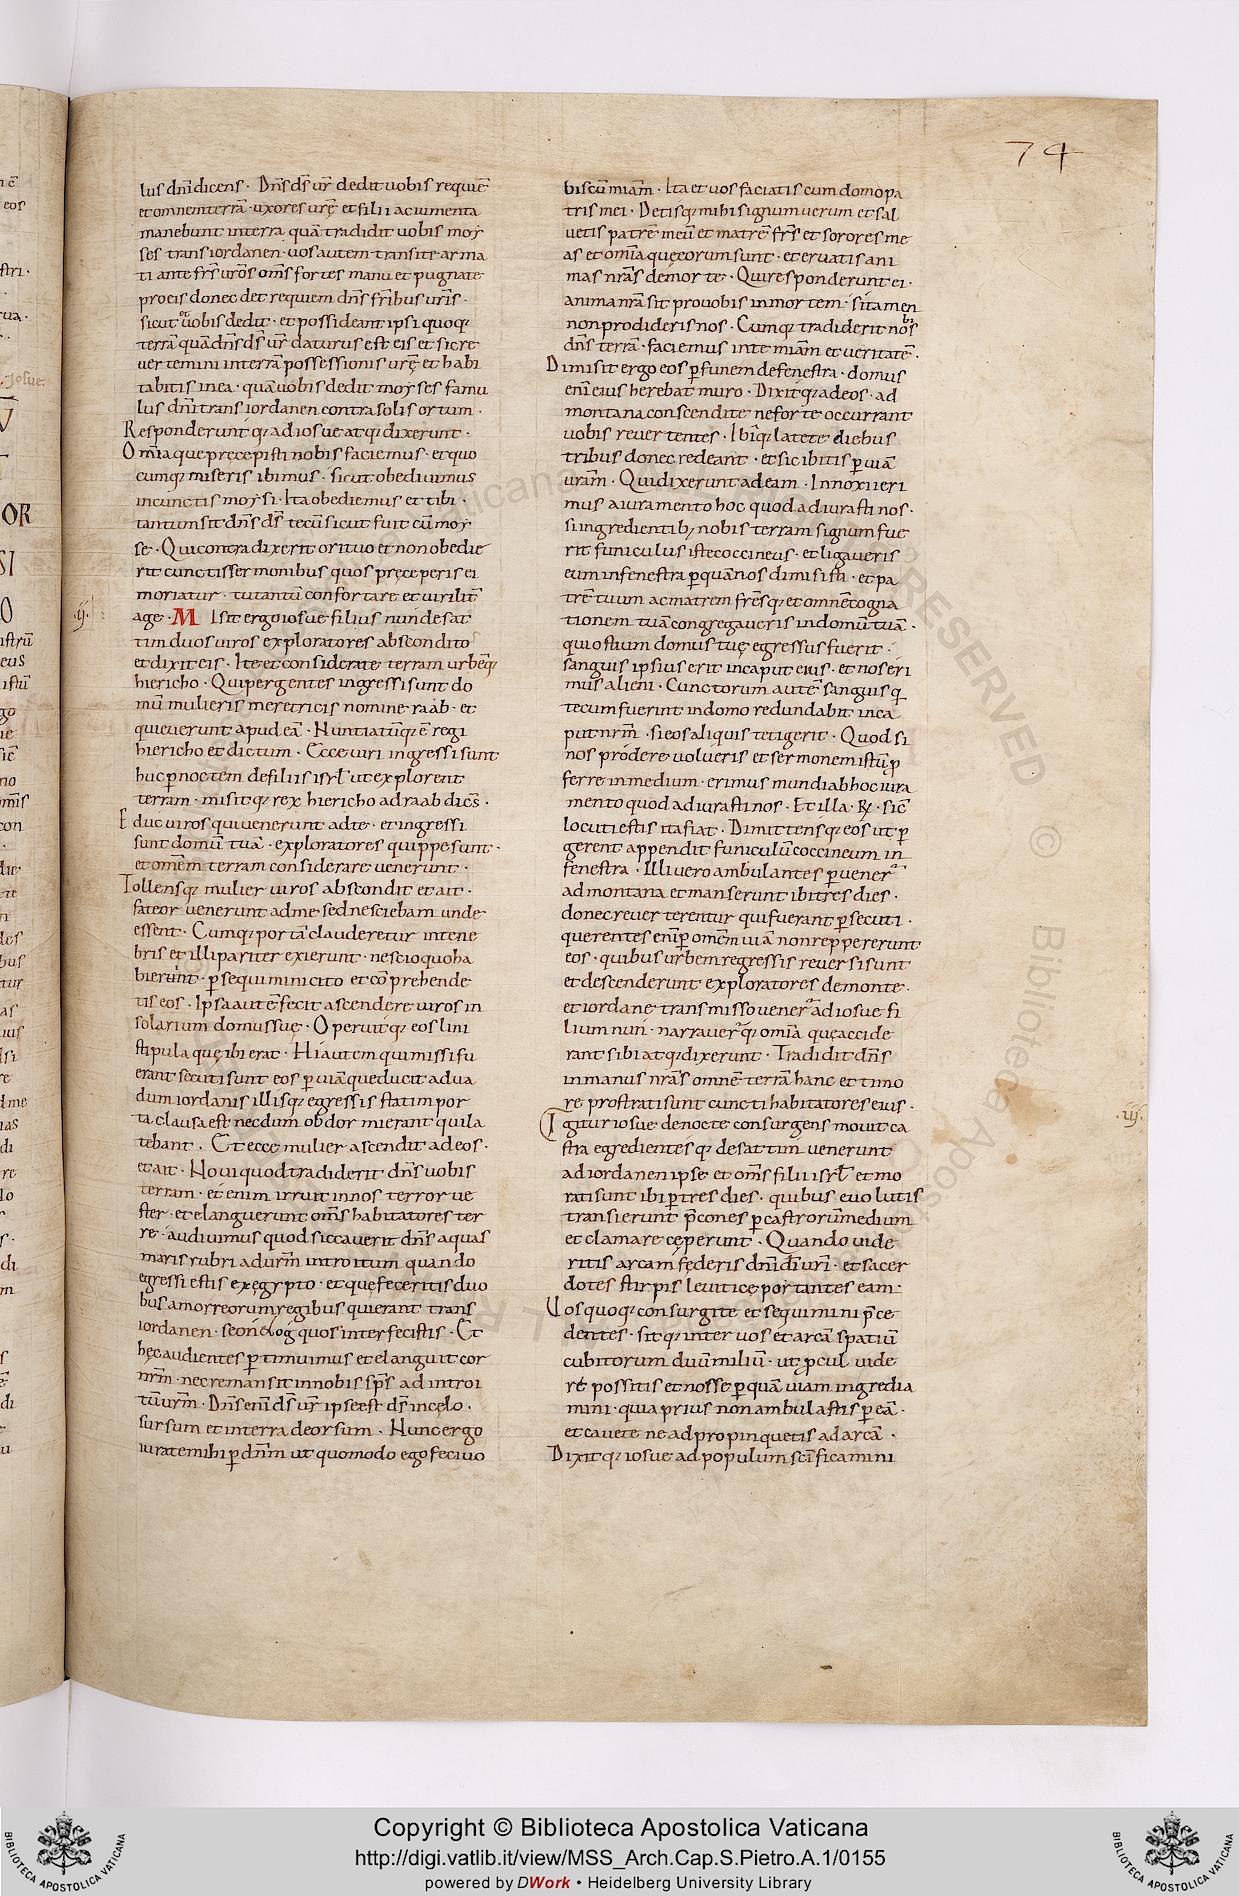 74
lus dñi dicens · Dñs ds̄ ur̄ dedit uobis requiē
et omnem terrā · uxores urę̄ et filii ac iumenta
manebunt in terra quā tradidit uobis moy
ses trans iordanen · uos autem transite arma
ti ante frs̄ urōs om̄s fortes manu et pugnate
pro eis donec det requiem dn̄s fr̄ibus ur̄is ·
sicut et uobis dedit · et possideant ipsi quoq;
terrā quā dn̄s ds̄ ur̄ daturus est eis et sic re
uertemini in terrā possessionis urę̄ et habi
tabitis in ea · quā uobis dedit moyses famu
lus dn̄i trans iordanen contra solis ortum ·
Responderunt q; ad iosue atq; dixerunt ·
Om̄ia que pręcepisti nobis faciemus · et quo
cumq; miseris ibimus · sicut obediuimus
in cunctis moysi · Ita obediemus et tibi ·
tantum sit dn̄s ds̄ tecū sicut fuit cū moy
se · Qui contradixerit ori tuo et non obedie
rit cunctis sermonibus quos pręceperis ei
moriatur · tu tantū confortare et uirilit̄
.ij.
age · MIsit ergo iosue filius nun de sat
tim duos uiros exploratores abscondito
et dixit eis · Ite et considerate terram urbēq;
hiericho · Qui pergentes ingressi sunt do
mū mulieris meretricis nomine raab · et
quieuerunt apud eā · Nuntiatūq; ē regi
hiericho et dictum · Ecce uiri ingressi sunt
huc p̄ noctem de filiis isrl̄ ut explorent
terram · misitq; rex hiericho ad raab dic̄s ·
Educ uiros qui uenerunt ad te · et ingressi
sunt domū tuā · exploratores quippe sunt ·
et om̄em terram considerare uenerunt ·
Tollensq; mulier uiros abscondit et ait ·
fateor uenerunt ad me sed nesciebam unde
essent · Cumq; portā clauderetur in tene
bris et illi pariter exierunt · nescio quo ha
bierunt · p̄sequimini cito et cōprehende
tis eos · Ipsa autē fecit ascendere uiros in
solarium domus suę · Operuitq; eos lini
stipula quę ibi erat · Hi autem qui missi fu
erant secuti sunt eos p̄ uiā que ducit ad ua
dum iordanis illisq; egressis statim por
ta clausa est necdum obdormierant qui la
tebant · Et ecce mulier ascendit ad eos ·
et ait · Noui quod tradiderit dn̄s uobis
terram · etenim irruit in nos terror ue
ster · et elanguerunt om̄s habitatores ter
re · audiuimus quod siccauerit dn̄s aquas
maris rubri ad urm̄ introitum quando
egressi estis ex ęgypto · et quę feceritis duo
bus amorreorum regibus qui erant trans
iordanen · seon et og quos interfecistis · Et
hęc audientes p̄timuimus et elanguit cor
nrm̄ · nec remansit in nobis sps̄ ad introi
tū urm̄ · Dn̄s enī ds̄ ur̄ ipse est ds̄ in cęlo ·
sursum et in terra deorsum · Nunc ergo
iurate mihi p̄ dn̄m ut quomodo ego feci uo
biscū miam̄ · Ita et uos faciatis cum domo pa
tris mei · Detisq; mihi signum uerum et sal
uetis patrē meū et matrē frs̄ et sorores me
as et om̄ia quę eorum sunt · et eruatis ani
mas nrās de morte · Qui responderunt ei ·
anima nrā sit pro uobis in mortem · si tamen
non prodideris nos · Cumq; tradiderit nobis
dn̄s terrā · faciemus in te miam̄ et ueritatē ·
Dimisit ergo eos p̄ funem de fenestra · domus
enī eius herebat muro · Dixitq; ad eos · ad
montana conscendite ne forte occurrant
uobis reuertentes · Ibiq; latete diebus
tribus donec redeant · et sic ibitis p̄ uiā
urām · Qui dixerunt ad eam · Innoxii eri
mus a iuramento hoc quod adiurasti nos ·
si ingredientib; nobis terram signum fue
rit funiculus iste coccineus · et ligaueris
eum in fenestra p̄ quā nos dimisisti · et pa
trē tuum ac matrem frēsq; et omnē cogna
tionem tuā congregaueris in domū tuā ·
qui ostium domus tuę egressus fuerit ·
sanguis ipsius erit in caput eius · et nos eri
mus alieni · Cunctorum autē sanguis q̄
tecum fuerint in domo redundabit in ca
put nrm̄ · si eos aliquis tetigerit · Quod si
nos prodere uolueris et sermonem istū p̄
ferre in medium · erimus mundi ab hoc iura
mento quod adiurasti nos · Et illa · R̄ · sic̄
locuti estis ita fiat · Dimittensq; eos ut p̄
gerent appendit funiculū coccineum in
fenestra · Illi uero ambulantes p̄uener̄
ad montana et manserunt ibi tres dies ·
donec reuerterentur qui fuerant p̄secuti ·
querentes enī p̄ om̄em uiā non reppererunt
eos · quibus urbem regressis reuersi sunt
et descenderunt exploratores de monte ·
et iordane transmisso uener̄ ad iosue fi
lium nun · narrauer̄q; om̄ia quę accide
rant sibi atq; dixerunt · Tradidit dn̄s
in manus nrās omnē terrā hanc et timo
re prostrati sunt cuncti habitatores eius ·
Igitur iosue de nocte consurgens mouit ca
.iij.
stra egredientesq; de sattim uenerunt
ad iordanen ipse et om̄s filii isrl̄ et mo
rati sunt ibi p̄ tres dies · quibus euolutis
transierunt p̄cones p̄ castrorū medium
et clamare cęperunt · Quando uide
ritis arcam fęderis dn̄i dī urī · et sacer
dotes stirpis leuiticę portantes eam ·
Uos quoq; consurgite et sequimini p̄ce
dentes · sitq; inter uos et arcā spatiū
cubitorum duū miliū · ut p̄cul uide
re possitis et nosse p̄ quā uiam ingredia
mini · quia prius non ambulastis p̄ eā ·
et cauete ne adpropinquetis ad arcā ·
Dixitq; iosue ad populum sc̄ificamini
Copyright © Biblioteca Apostolica Vaticana
http://digi.vatlib.it/view/MSS_Arch.Cap.S.Pietro.A.1/0155
powered by DWork • Heidelberg University Library